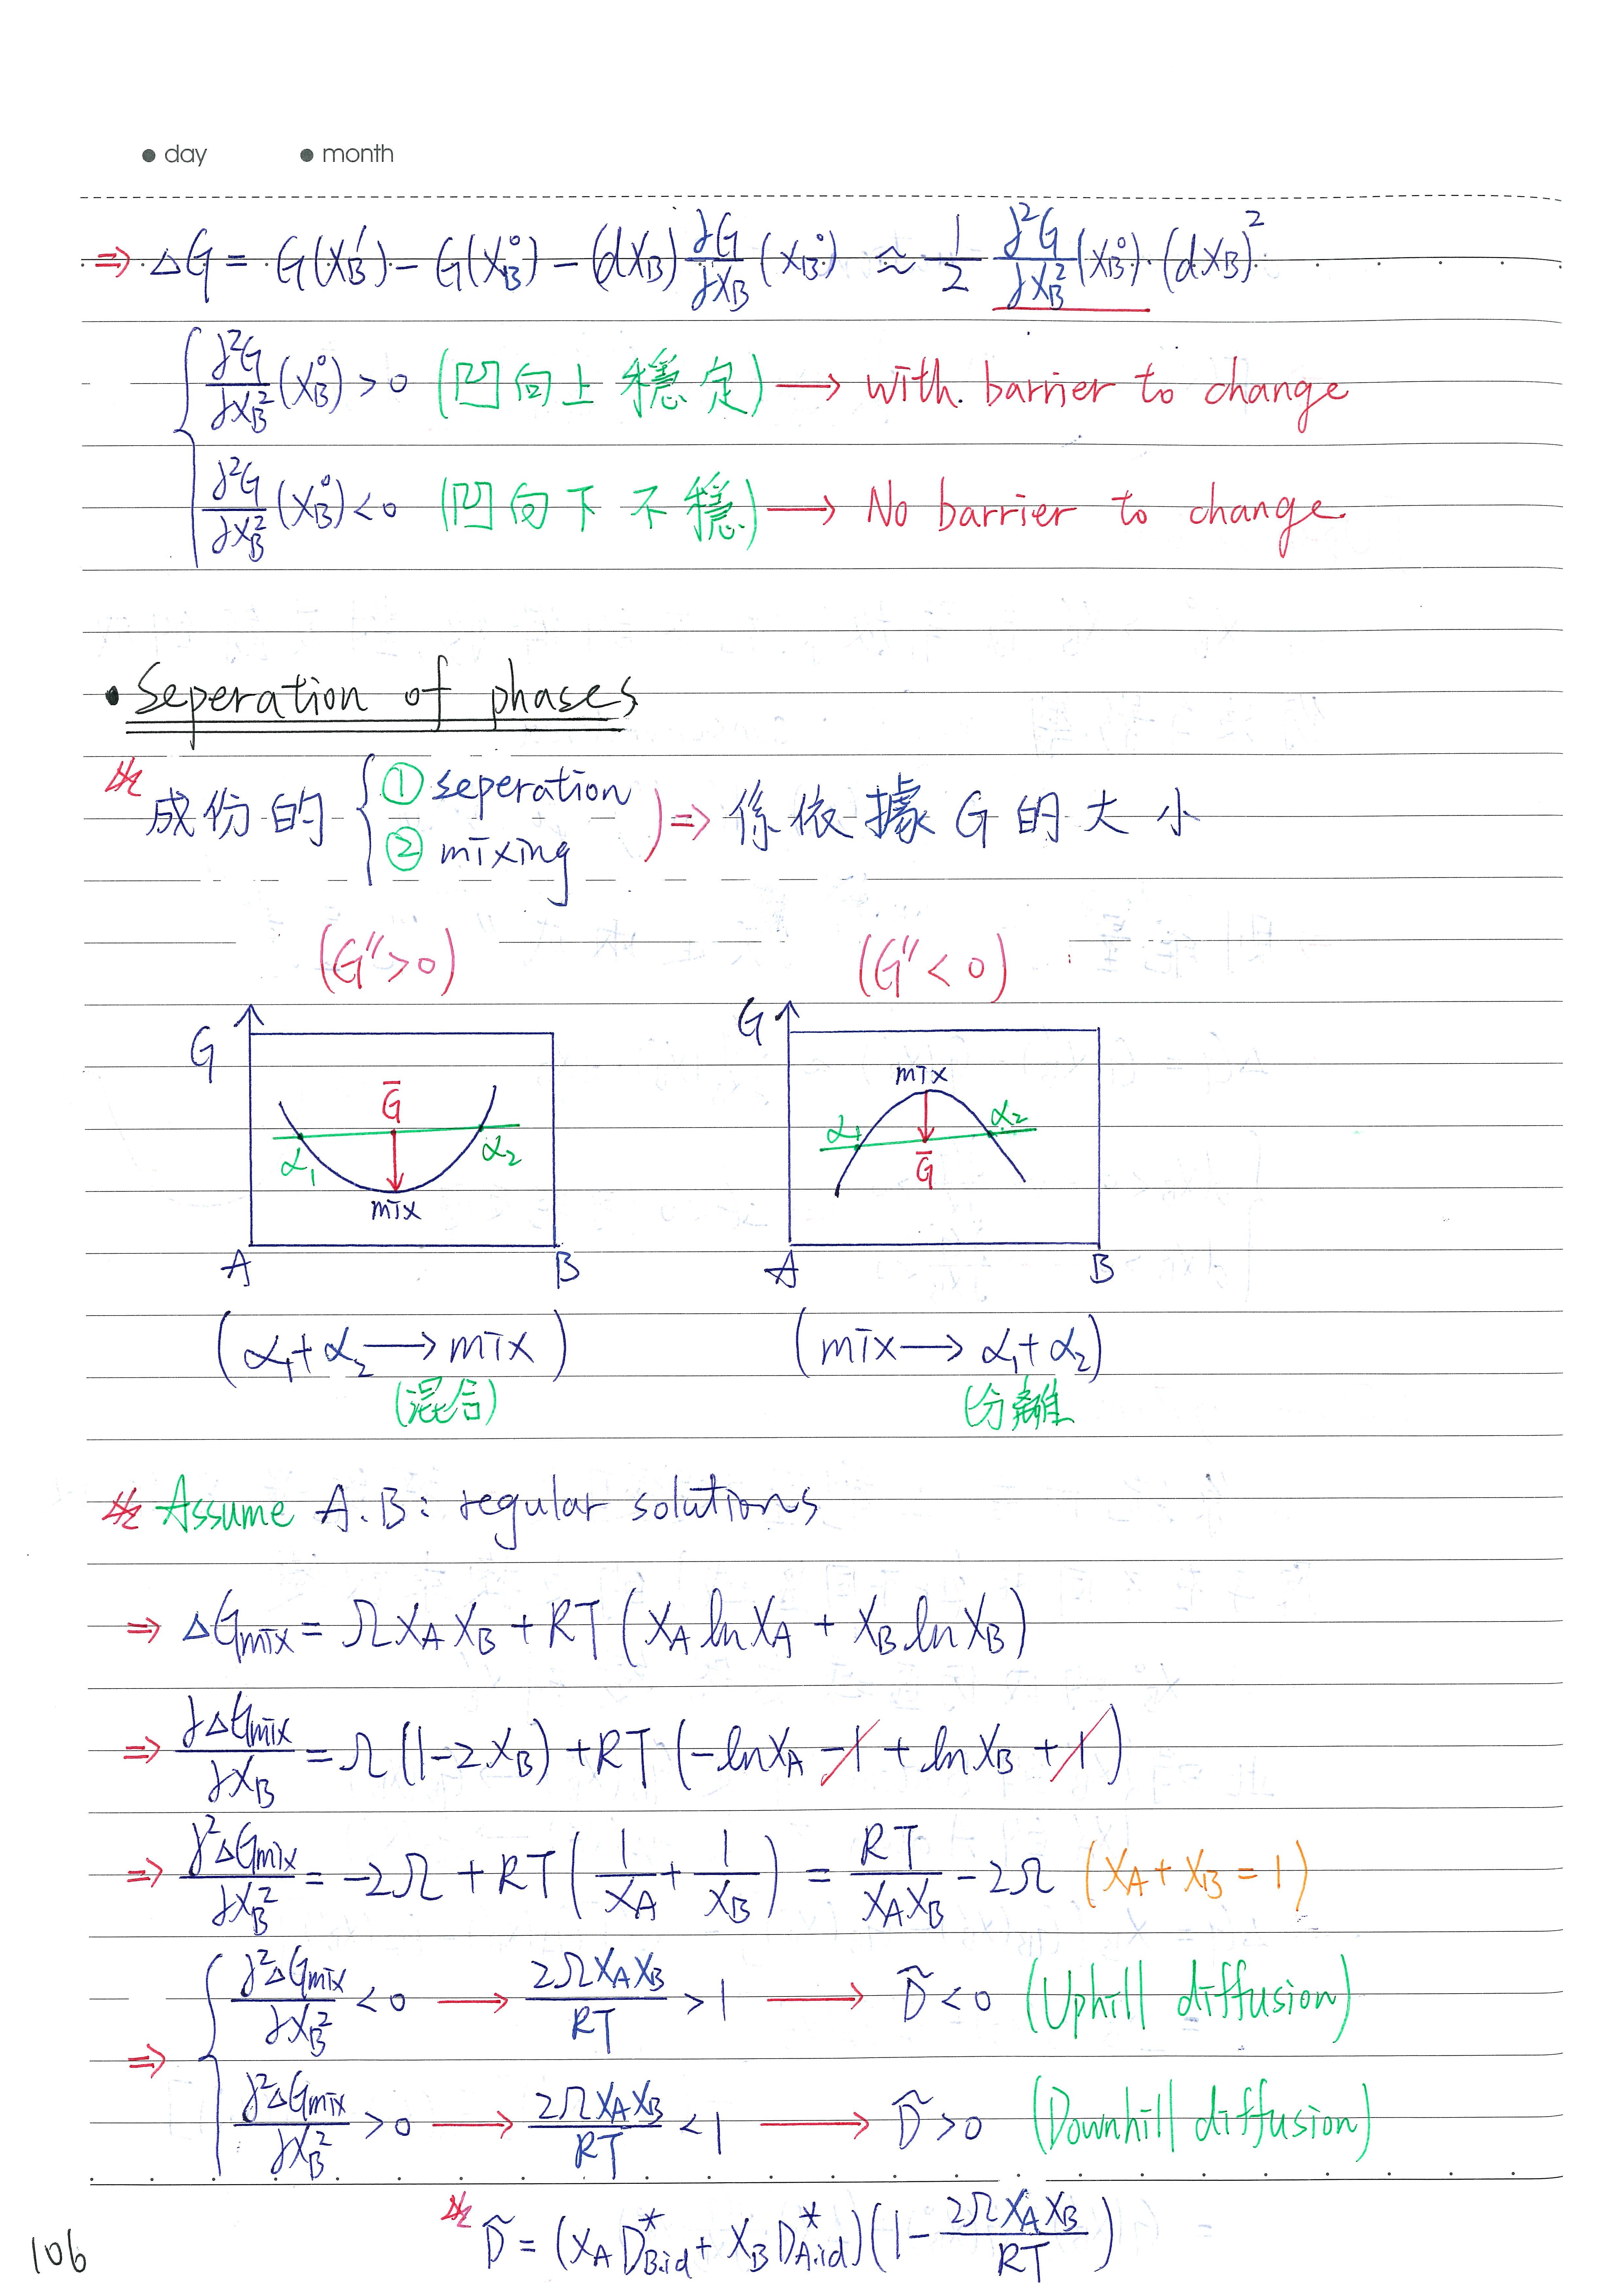 ● day ● month
⇒ ΔG = G(X_B') - G(X_B°) - (dX_B) ∂G/∂X_B (X_B°) ≈ 1/2 ∂²G/∂X_B² (X_B°)·(dX_B)²
∂²G/∂X_B² (X_B°) > 0 (凹向上 穩定) → with barrier to change
∂²G/∂X_B² (X_B°) < 0 (凹向下 不穩) → No barrier to change
• Seperation of phases
成份的 { ① seperation
② mixing ) ⇒ 係依據 G 的大小
(G''>0) (G''<0)
G G
mix
Ḡ α₁ α₂
α₁ α₂ Ḡ
mix
A B A B
(α₁+α₂ → mix) (mix → α₁+α₂)
(混合) (分離
※ Assume A.B: regular solutions
⇒ ΔGmix = ΩX_AX_B + RT(X_A lnX_A + X_B lnX_B)
⇒ ∂ΔGmix/∂X_B = Ω(1-2X_B) + RT(-lnX_A -1 + lnX_B +1)
⇒ ∂²ΔGmix/∂X_B² = -2Ω + RT(1/X_A + 1/X_B) = RT/X_AX_B - 2Ω (X_A + X_B = 1)
⇒ { ∂²ΔGmix/∂X_B² < 0 → 2ΩX_AX_B/RT > 1 → D̃ < 0 (Uphill diffusion)
∂²ΔGmix/∂X_B² > 0 → 2ΩX_AX_B/RT < 1 → D̃ > 0 (Downhill diffusion)
※ D̃ = (X_A D*_B.id + X_B D*_A.id)(1 - 2ΩX_AX_B/RT)
106